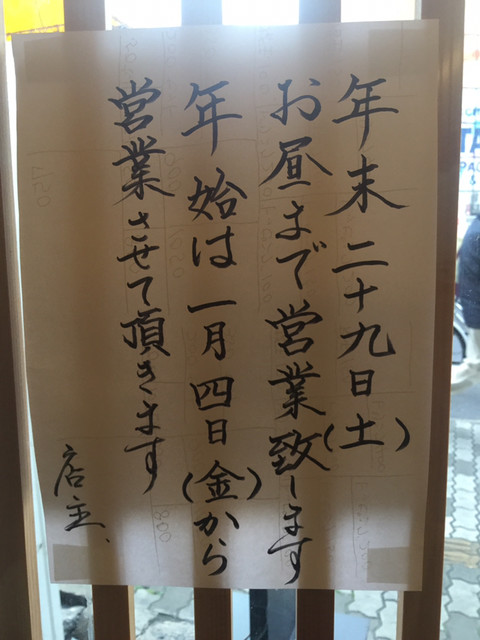 年末二十九日(土)
お昼まで営業致します
年始は一月四日(金)から
営業させて頂きます
店主、